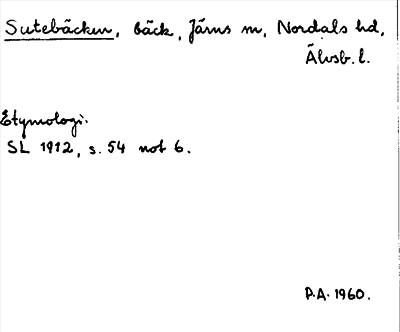 Sutebäcken, bäck, Järns sn, Nordals hd,
Älvsb. l.
Etymologi.
SL 1912, s. 54 not 6.
P.A. 1960.